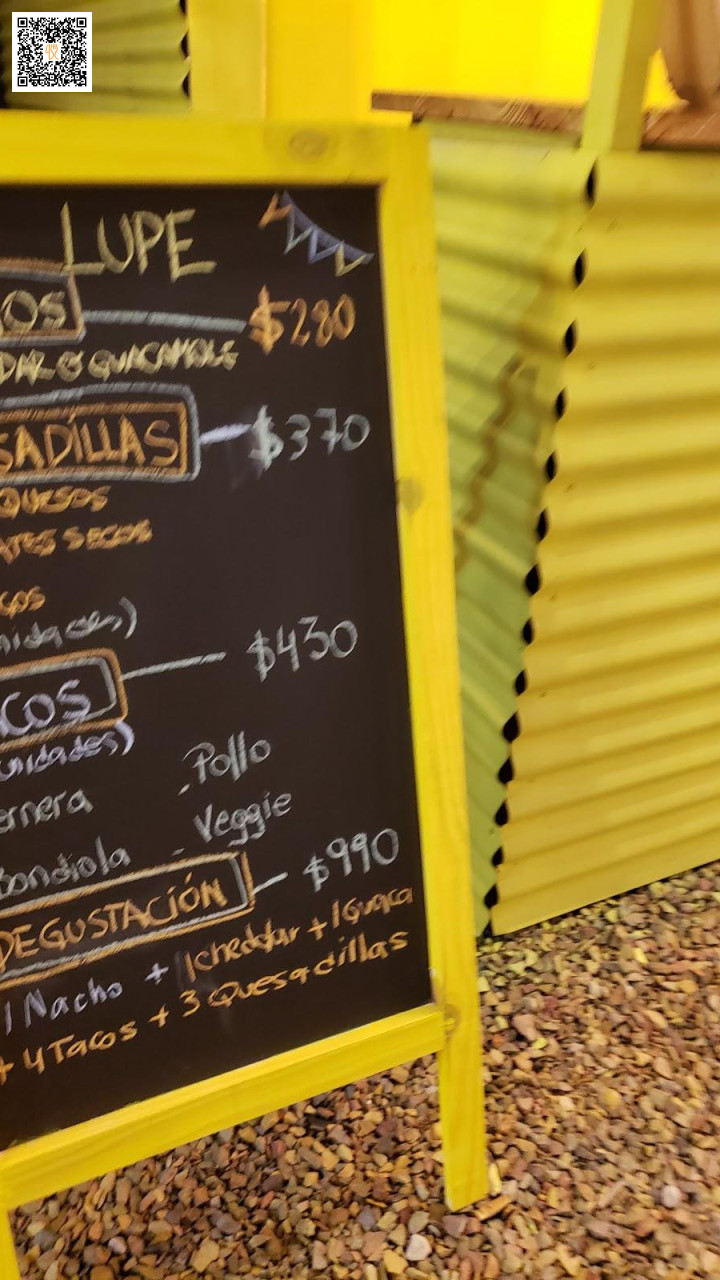 LUPE
OS $280
DAR O GUACAMOLE
SADILLAS $370
QUESOS
ATES SECOS
GOS
nidades)
COS $430
unidades)
ernera - Pollo
Bondiola - Veggie
DEGUSTACIÓN $990
1 Nacho + 1 cheddar + 1 Guaca
+ 4 Tacos + 3 Quesadillas